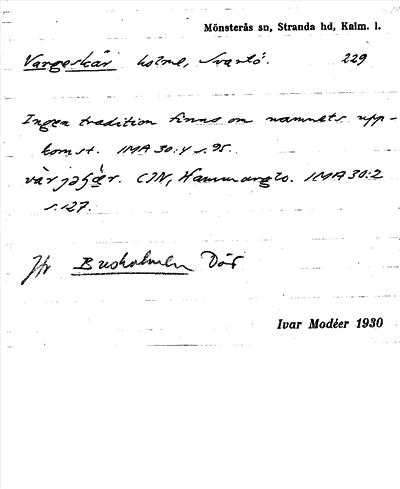 Mönsterås sn, Stranda hd, Kalm. l.
Vargeskär holme, Svartö. 229
Ingen tradition finns om namnets upp-
komst. IMA 30:4 s. 95.
CJN, Hammarglo. IMA 30:2
s. 127.
Jfr Busholmen Döt
Ivar Modéer 1930